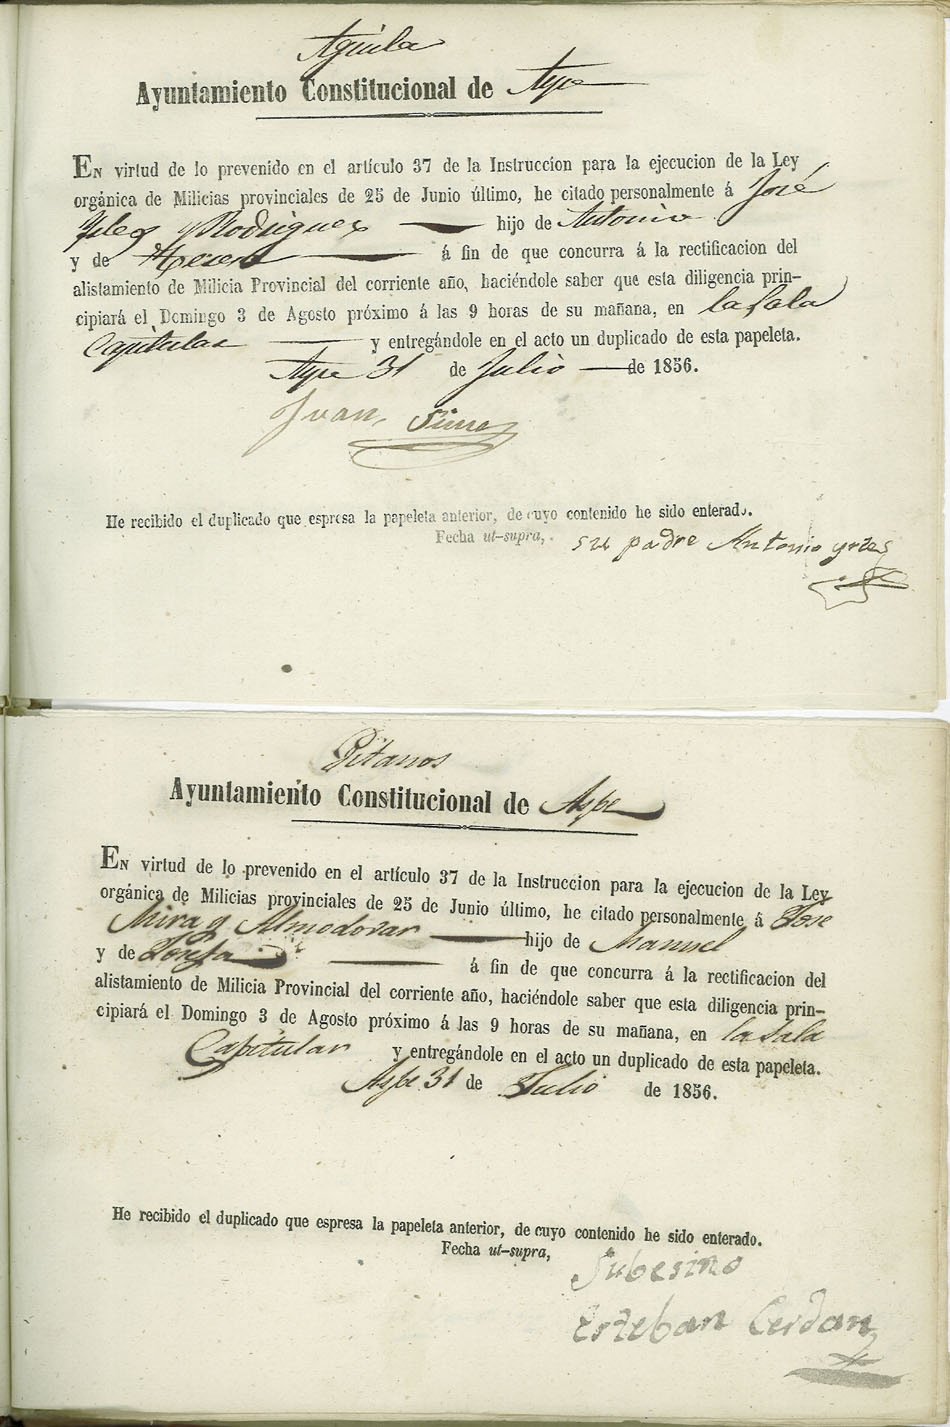 Aguila
Ayuntamiento Constitucional de Aspe
EN virtud de lo prevenido en el artículo 37 de la Instruccion para la ejecucion de la Ley
orgánica de Milicias provinciales de 25 de Junio último, he citado personalmente á José
y Rodriguez hijo de Antonio
y de á fin de que concurra á la rectificacion del
alistamiento de Milicia Provincial del corriente año, haciéndole saber que esta diligencia prin–
cipiará el Domingo 3 de Agosto próximo á las 9 horas de su mañana, en la Sala
Capitular y entregándole en el acto un duplicado de esta papeleta.
Aspe 31 de Julio de 1856.
Juan
He recibido el duplicado que espresa la papeleta anterior, de cuyo contenido he sido enterado.
Fecha ut–supra,
su padre Antonio
Gitanos
Ayuntamiento Constitucional de Aspe
EN virtud de lo prevenido en el artículo 37 de la Instruccion para la ejecucion de la Ley
orgánica de Milicias provinciales de 25 de Junio último, he citado personalmente á Jose
Mira y Almodovar hijo de Manuel
y de Josefa á fin de que concurra á la rectificacion del
alistamiento de Milicia Provincial del corriente año, haciéndole saber que esta diligencia prin–
cipiará el Domingo 3 de Agosto próximo á las 9 horas de su mañana, en la Sala
Capitular y entregándole en el acto un duplicado de esta papeleta.
Aspe 31 de Julio de 1856.
He recibido el duplicado que espresa la papeleta anterior, de cuyo contenido he sido enterado.
Fecha ut–supra,
Subesino
Esteban Cerdan